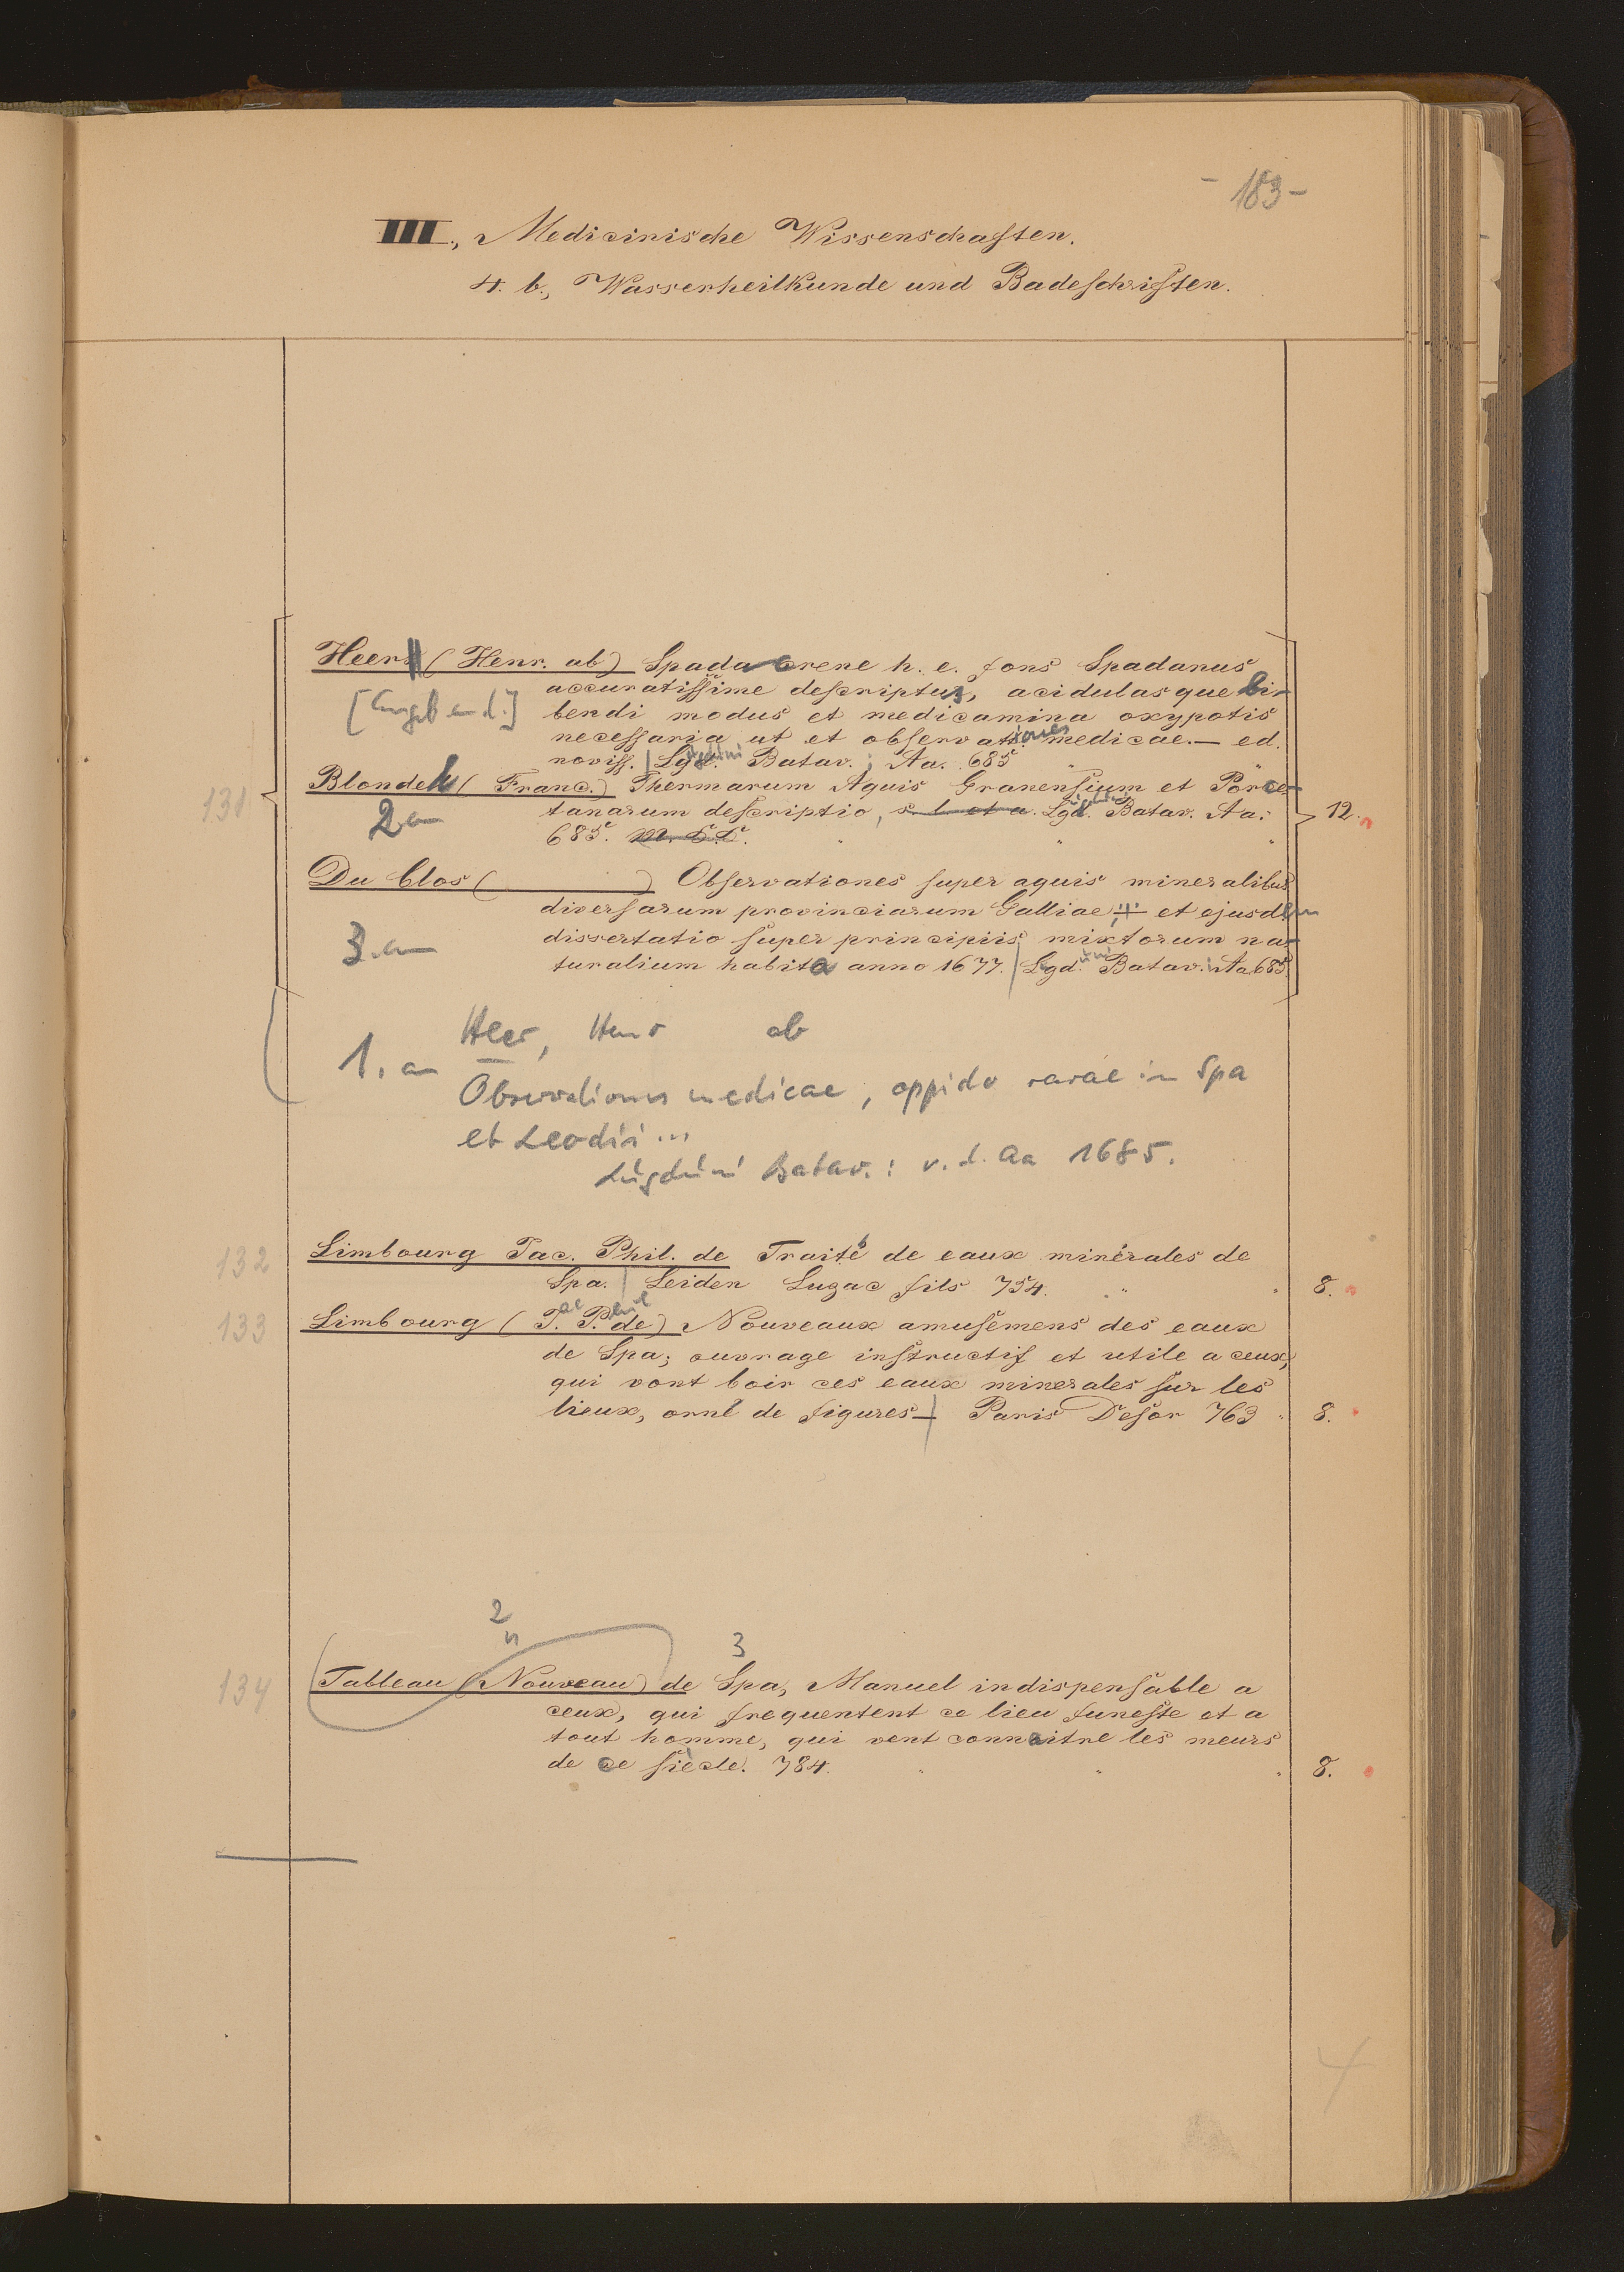 - 183 -
III., Medicinische Wissenschaften.
4. b., Wasserheilkunde und Badeschriften.
131
Heers (Henr. ab) Spadacrene h. e. fons Spadanus
accuratissime descriptus, acidulasque bi-
[Angeb. and.] bendi modus et medicamina oxypotis
necessaria ut et observationes medicae. — ed.
noviss. | Lugduni Batav. ; Aa. 685
Blondel (Franc.) Thermarum Aquis Granensium et Porce-
2 an tanarum descriptio, s. l. et a. Lugduni Batav. Aa. 12.
685.
Du Clos ( ) Observationes super aquis mineralibus
diversarum provinciarum Galliae, et ejusdem
3. an dissertatio super principiis mixtorum na-
turalium habita anno 1677. | Lugduni Batav. Aa 685.
1. an Heer, Henr ab
Observationes medicae, oppido rarae in Spa
et Leodii ...
Lugduni Batav. : v. d. Aa 1685.
132 Limbourg Jac. Phil. de Traité de eaux minérales de
Spa. | Leiden Luzac fils 754. 8.
133 Limbourg (Jac. Phil. de) Nouveaux amusemens des eaux
de Spa; ouvrage instructif et utile a ceux,
qui vont boir ces eaux minerales sur les
lieux, orné de figures — | Paris Desor 763 8.
2 3
134 Tableau (Nouveau) de Spa, Manuel indispensable a
ceux, qui frequentent ce lieu funeste et a
tout homme, qui vent connaitre les meurs
de ce siècle. 784. 8.
4